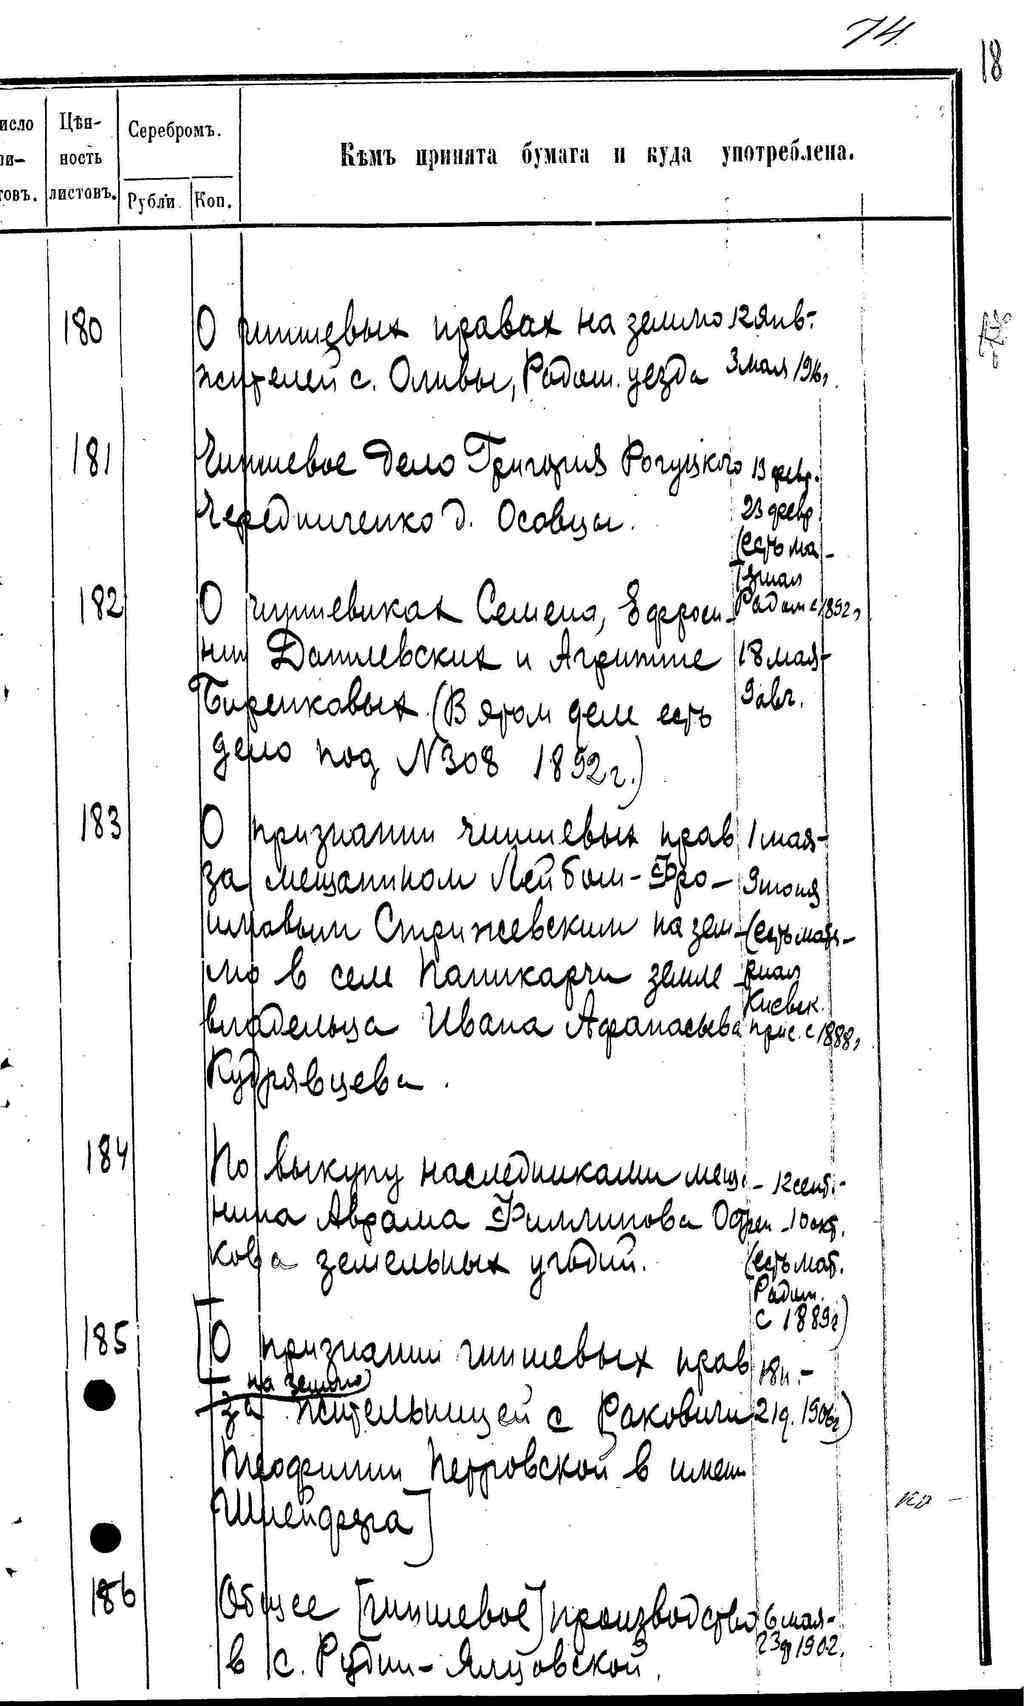 74
18
исло Цѣн- Серебромъ.
ли- ность Кѣмъ принята бумага и куда употреблена.
товъ. листовъ. Рубли Коп.
180 О чиншевых правах на землю 12 янв.-
жителей с. Оливы, Радом. уезда 3 мая 1916г.
181 Чиншевое дело Григория Рогуцкого 13 февр.-
Чередниченко д. Осовцы. 23 февр
(есть ма-
териал
182 О чиншевиках Семена, Ефроси- Радом с 1892г.
нии Данилевских и Агрипине 18 мая-
Биренковых. (В этом деле есть 9 авг.
дело под №308 1892г.)
183 О признании чиншевых прав 1 мая-
за мещанином Лейбом-Фро- 9 июня
имовым Стрижевским на зем- (есть мате-
лю в селе Пашкарчи земле- риал
Киевск.
владельца Ивана Афанасьева прис. с 1888г.
Кудрявцева.
184 По выкупу наследниками меща- 12 сент.-
нина Аврама Филлипова Обрен- 10 окт.
кова земельных угодий. (есть мат.
Радом.
с 1889г)
185 [О признании чиншевых прав 18 н.-
на землю
за жительницей с Раковичи 21 д. 1906г)
Теофилии Петровской в имен
Шлейфера]
186 Общее [чиншевое] производство 6 мая-
в с. Рудни-Ялцовской. 23 д 1902.